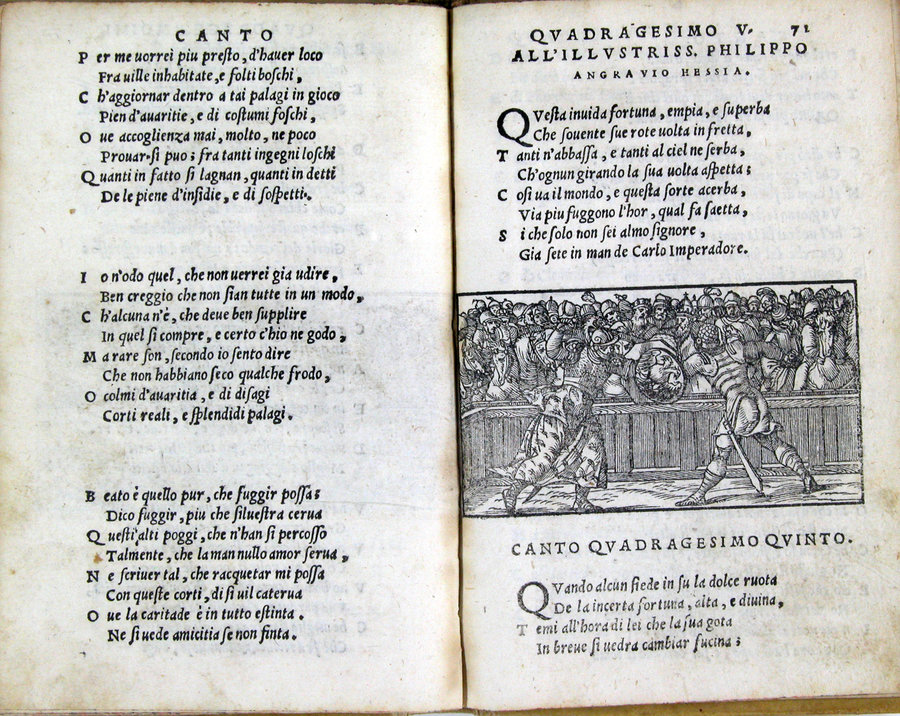 CANTO
Per me uorrei piu presto, d'hauer loco
Fra uille inhabitate, e folti boschi,
Ch'aggiornar dentro a tai palagi in gioco
Pien d'auaritie, e di costumi foschi,
Oue accoglienza mai, molto, ne poco
Prouar si puo; fra tanti ingegni loschi
Quanti in fatto si lagnan, quanti in detti
De le piene d'insidie, e di sospetti.
Io n'odo quel, che non uerrei gia udire,
Ben creggio che non sian tutte in un modo,
Ch'alcuna n'è, che deue ben supplire
In quel si compre, e certo c'hio ne godo,
Ma rare son, secondo io sento dire
Che non habbiano seco qualche frodo,
O colmi d'auaritia, e di disagi
Corti reali, e splendidi palagi.
Beato è quello pur, che fuggir possa;
Dico fuggir, piu che siluestra cerua
Questi alti poggi, che n'han si percosso
Talmente, che la man nullo amor serua,
Ne scriuer tal, che racquetar mi possa
Con queste corti, di si uil caterua
Oue la caritade è in tutto estinta.
Ne si uede amicitia se non finta.
QVADRAGESIMO V. 71
ALL'ILLVSTRISS. PHILIPPO
ANGRAVIO HESSIA.
QVesta inuida fortuna, empia, e superba
Che souente sue rote uolta in fretta,
Tanti n'abbassa, e tanti al ciel ne serba,
Ch'ognun girando la sua uolta aspetta;
Cosi ua il mondo, e questa sorte acerba,
Via piu fuggono l'hor, qual fa saetta,
Si che solo non sei almo signore,
Gia sete in man de Carlo Imperadore.
CANTO QVADRAGESIMO QVINTO.
QVando alcun siede in su la dolce ruota
De la incerta fortuna, alta, e diuina,
Temi all'hora di lei che la sua gota
In breue si uedra cambiar fucina;